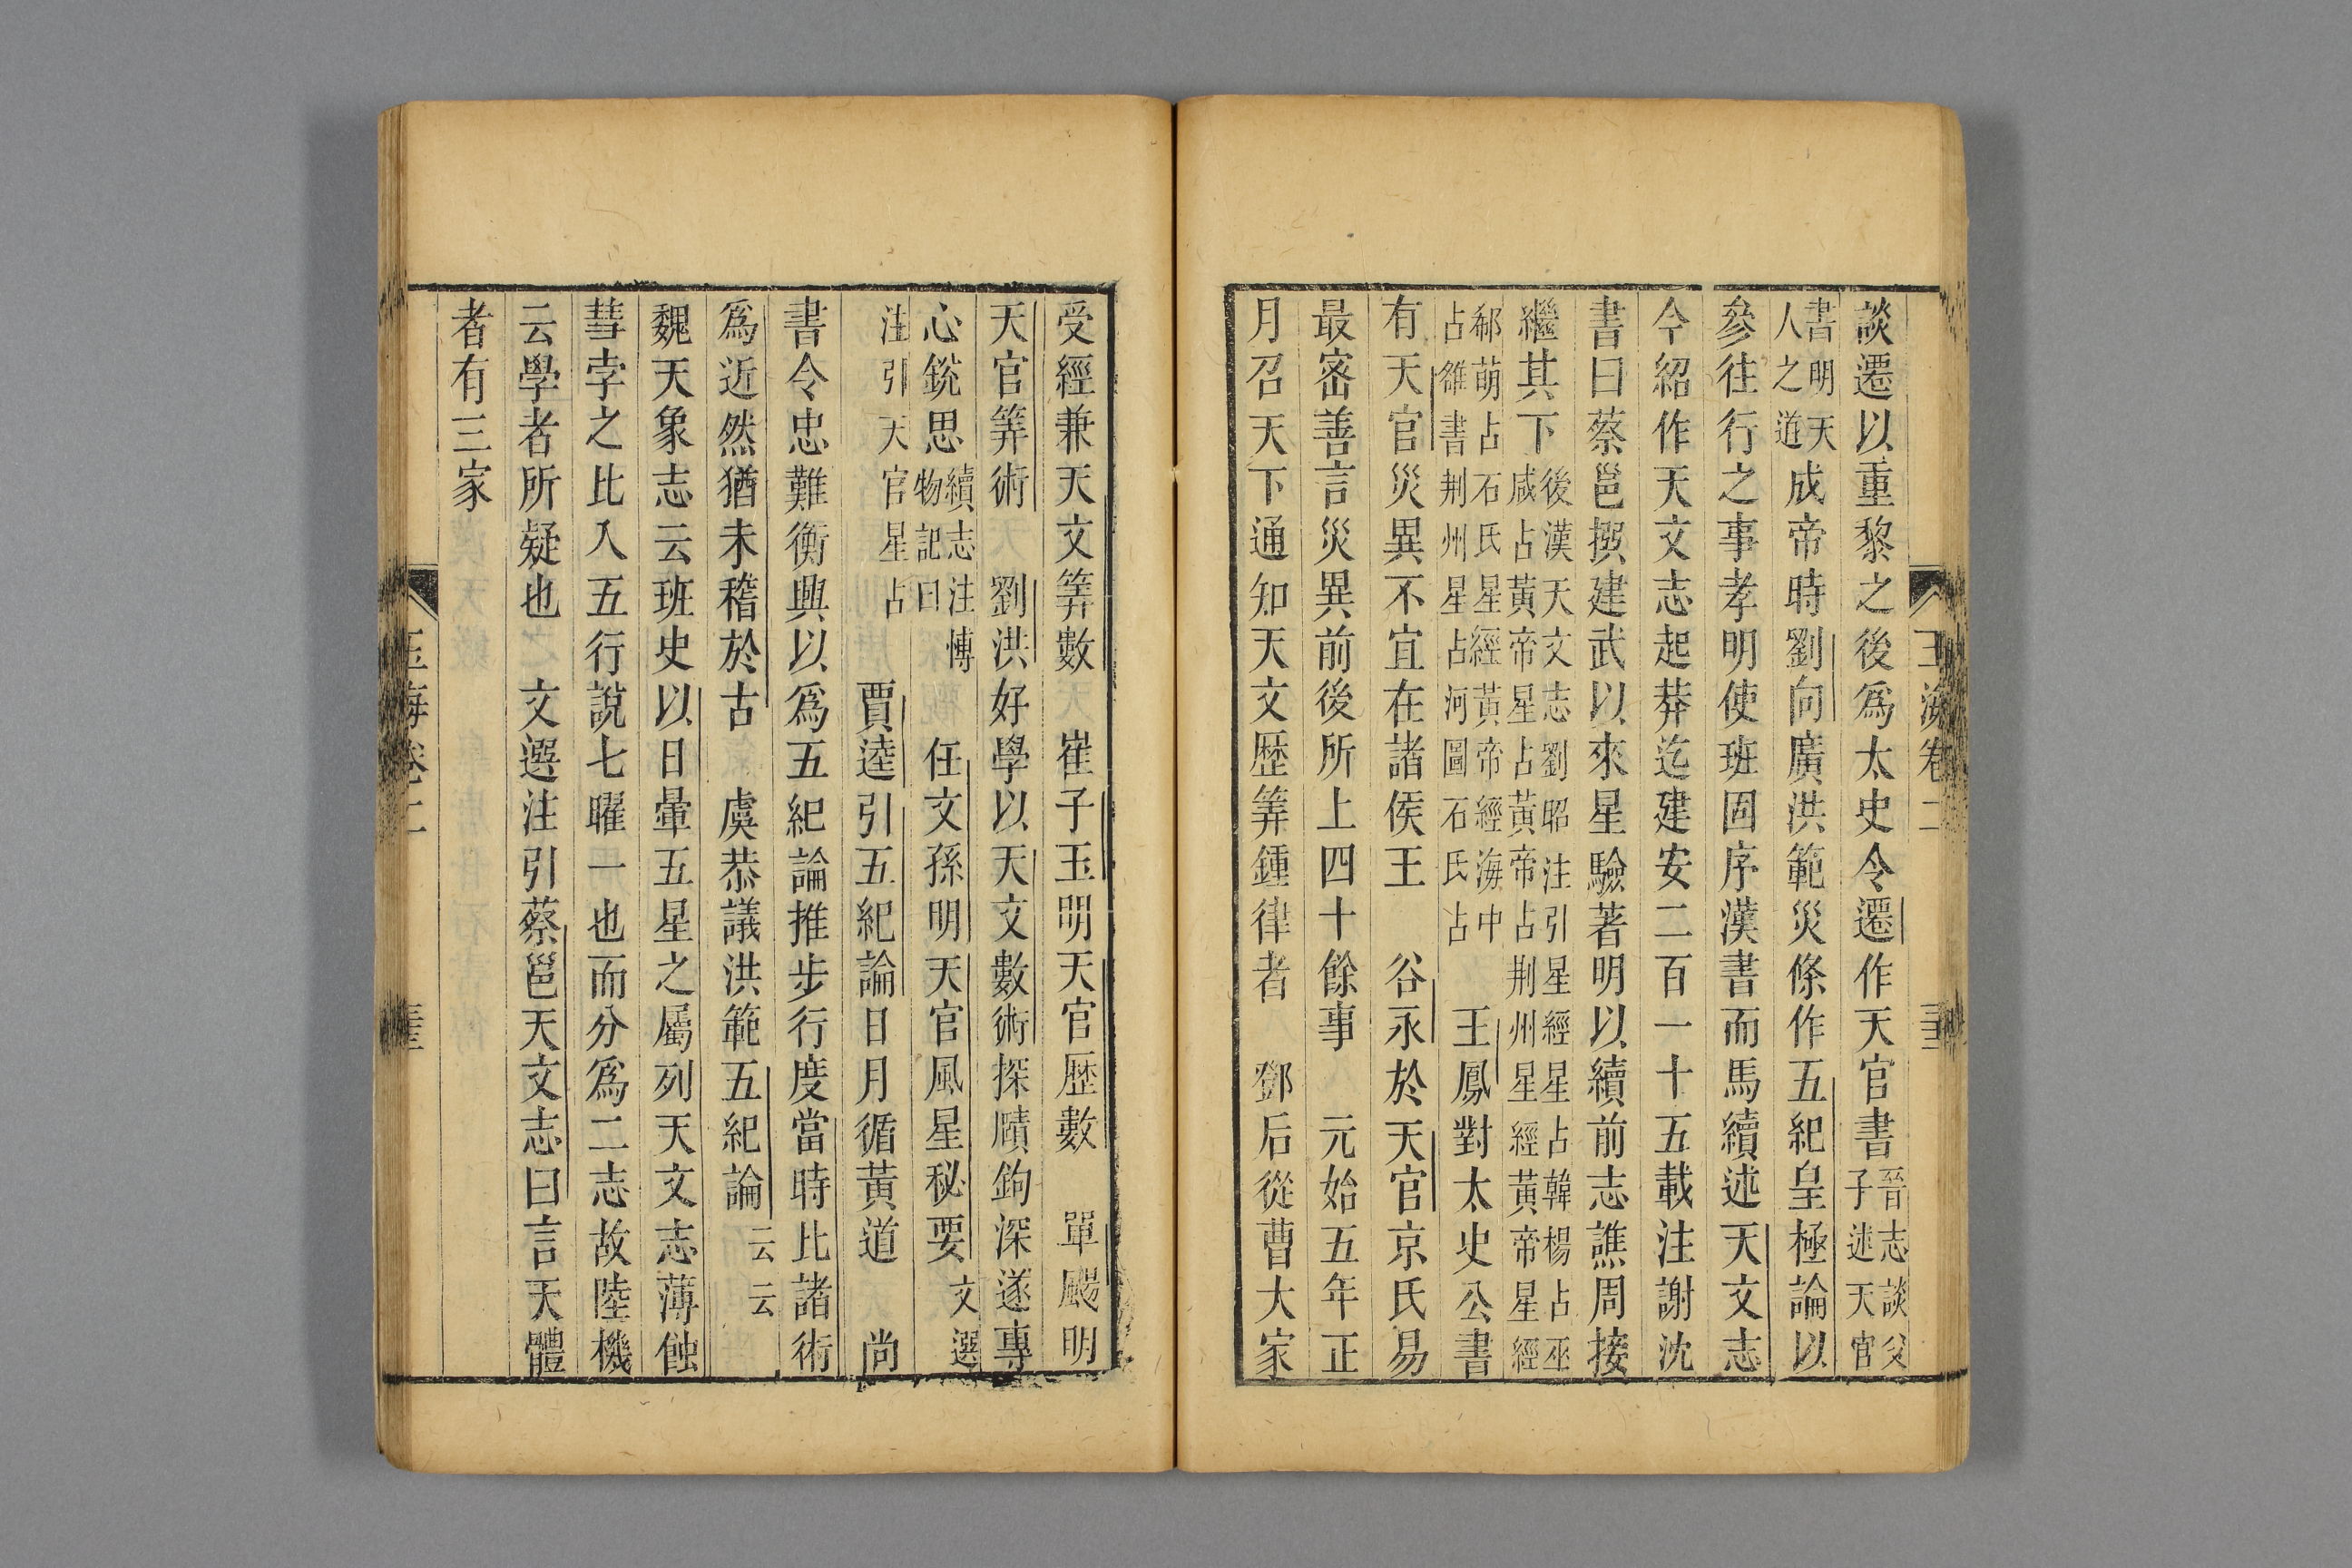 玉海卷二
談遷以重黎之後爲太史令遷作天官書晉志談父子述天官
書明天人之道成帝時劉向廣洪範災條作五紀皇極論以
參往行之事孝明使班固序漢書而馬續述天文志
今紹作天文志起莽迄建安二百一十五載注謝沈
書曰蔡邕撰建武以來星驗著明以續前志譙周接
繼其下後漢天文志劉昭注引星經星占韓楊占巫咸占黃帝星占黃帝占荆州星經黃帝星經
郗萌占石氏星經黃帝經海中占雒書荆州星占河圖石氏占 王鳳對太史公書
有天官災異不宜在諸侯王 谷永於天官京氏易
最密善言災異前後所上四十餘事 元始五年正
月召天下通知天文歷筭鍾律者 鄧后從曹大家
受經兼天文筭數 崔子玉明天官歷數 單颺明
天官筭術 劉洪好學以天文數術探賾鉤深遂專
心銳思續志注博物記曰 任文孫明天官風星秘要文選
注引天官星占 賈逵引五紀論日月循黃道 尚
書令忠難衡興以爲五紀論推步行度當時比諸術
爲近然猶未稽於古 虞恭議洪範五紀論云云
魏天象志云班史以日暈五星之屬列天文志薄蝕
彗孛之比入五行說七曜一也而分爲二志故陸機
云學者所疑也 文選注引蔡邕天文志曰言天體
者有三家
玉海卷二